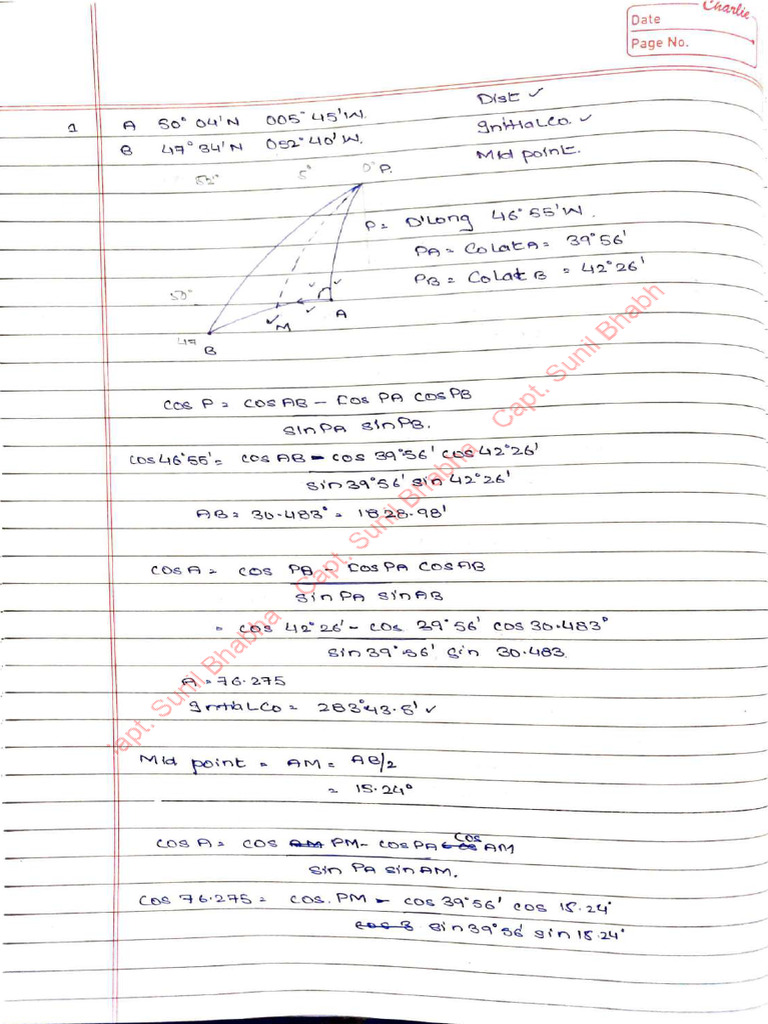 Charlie
Date
Page No.
1 A 50° 04'N 005° 45'W. Dist ✓
Initial Co. ✓
B 47° 34'N 052° 40'W. Mid point.
52° 5° 0° P.
P = D'Long 46° 55'W.
PA = Colat A = 39° 56'
PB = Colat B = 42° 26'
50°
A
M
47
B
cos P = cos AB - cos PA cos PB
sin PA sin PB.
cos 46° 55' = cos AB - cos 39° 56' cos 42° 26'
sin 39° 56' sin 42° 26'
AB = 30.483° = 1828.98'
cos A = cos PA - cos PA cos AB
sin PA sin AB
= cos 42° 26' - cos 39° 56' cos 30.483°
sin 39° 56' sin 30.483
A = 76.275
Initial Co = 283° 43.5' ✓
Mid point = AM = AB/2
= 15.24°
cos A = cos AM PM - cos PA cos cos AM
sin PA sin AM.
cos 76.275 = cos. PM - cos 39° 56' cos 15.24°
cos 3 sin 39° 56' sin 15.24°
Capt. Sunil Bhabha Capt. Sunil Bhabha Capt. Sunil Bhabh